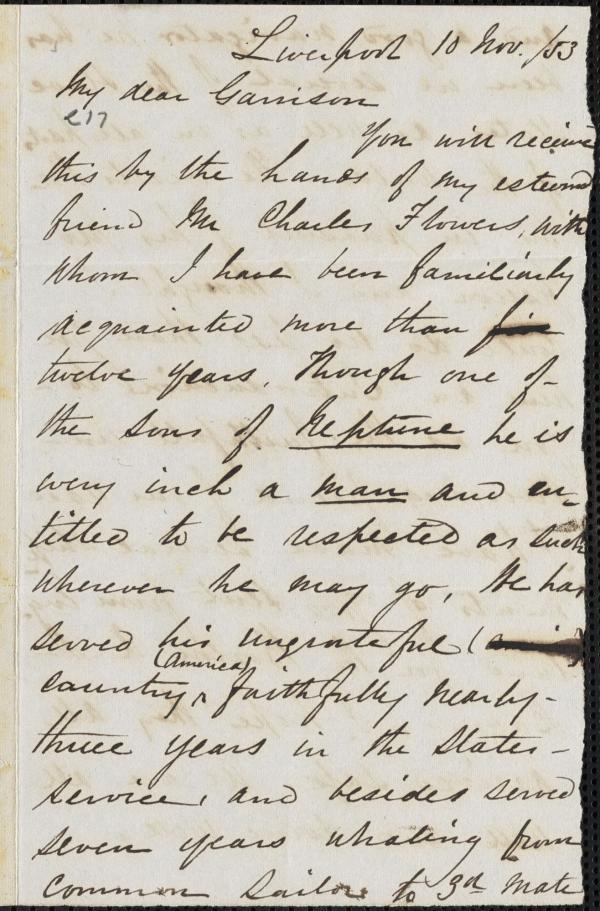 Liverpool 10 Nov. /53
My dear Garrison
e17
You will receive
this by the hands of my esteemed
friend Mr Charles Flowers, with
whom I have been familiarly
acquainted more than five
twelve years. Though one of
the sons of Neptune he is
every inch a man and en-
titled to be respected as such
wherever he may go, He has
served his ungrateful (
(America)
country, faithfully nearly
three years in the States
service, and besides served
seven years whaling from
common sailor to 3d mate